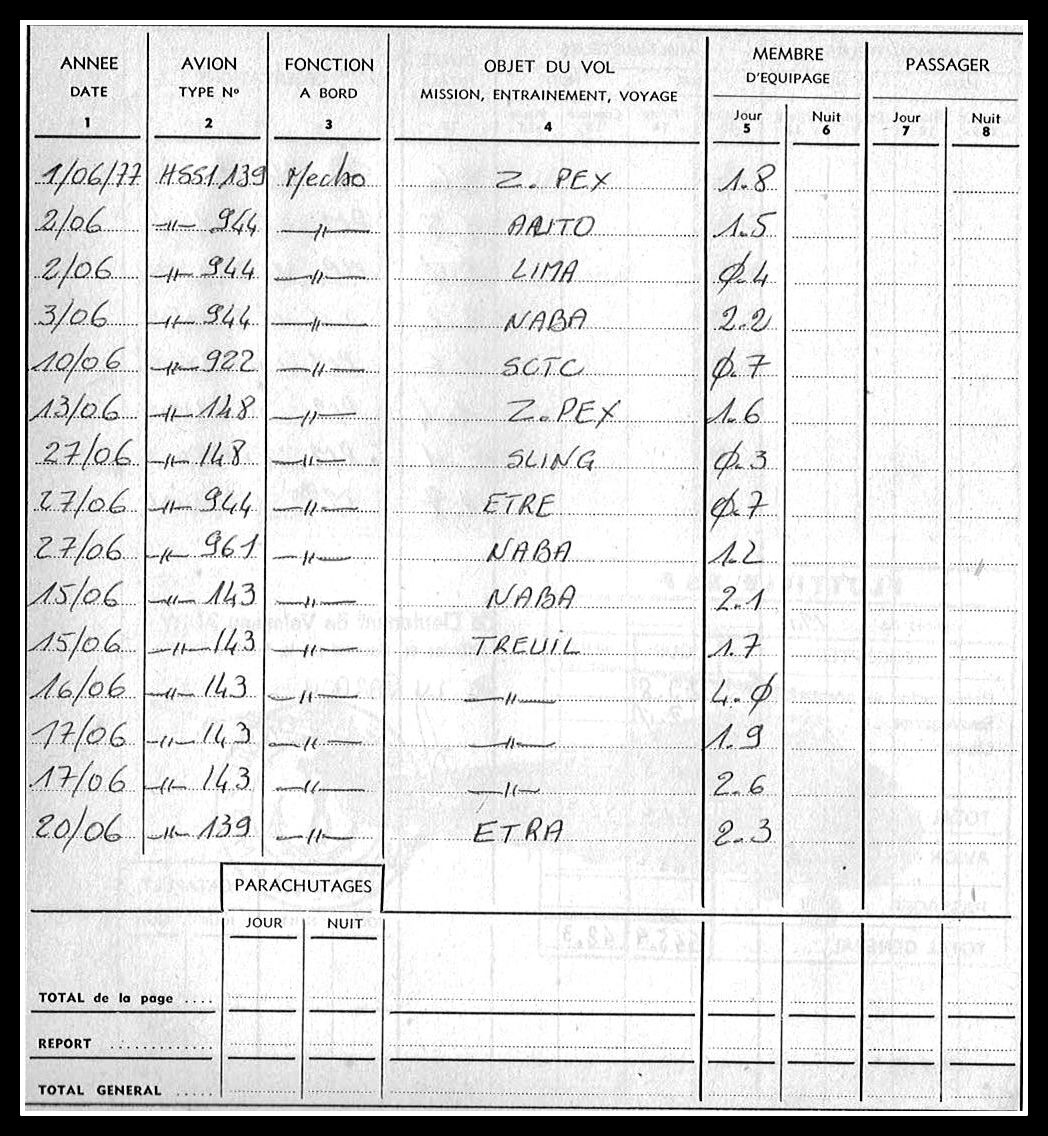 ANNEE AVION FONCTION OBJET DU VOL MEMBRE PASSAGER
DATE TYPE Nº A BORD MISSION, ENTRAINEMENT, VOYAGE D'EQUIPAGE
Jour Nuit Jour Nuit
1 2 3 4 5 6 7 8
1/06/77 HSS1.139 Mecbo Z. PEX 1.8
2/06 —〃— 944 —〃— 1.5
2/06 —〃— 944 —〃— LIMA Ø.4
3/06 —〃— 944 —〃— NABA 2.2
10/06 —〃— 922 —〃— SCTC Ø.7
13/06 —〃— 148 —〃— Z. PEX 1.6
27/06 —〃— 148 —〃— SLING Ø.3
27/06 —〃— 944 —〃— ETRE Ø.7
27/06 —〃— 961 —〃— NABA 1.2
15/06 —〃— 143 —〃— NABA 2.1
15/06 —〃— 143 —〃— TREUIL 1.7
16/06 —〃— 143 —〃— —〃— 4.Ø
17/06 —〃— 143 —〃— —〃— 1.9
17/06 —〃— 143 —〃— —〃— 2.6
20/06 —〃— 139 —〃— ETRA 2.3
PARACHUTAGES
JOUR NUIT
TOTAL de la page ....
REPORT ............
TOTAL GENERAL .....